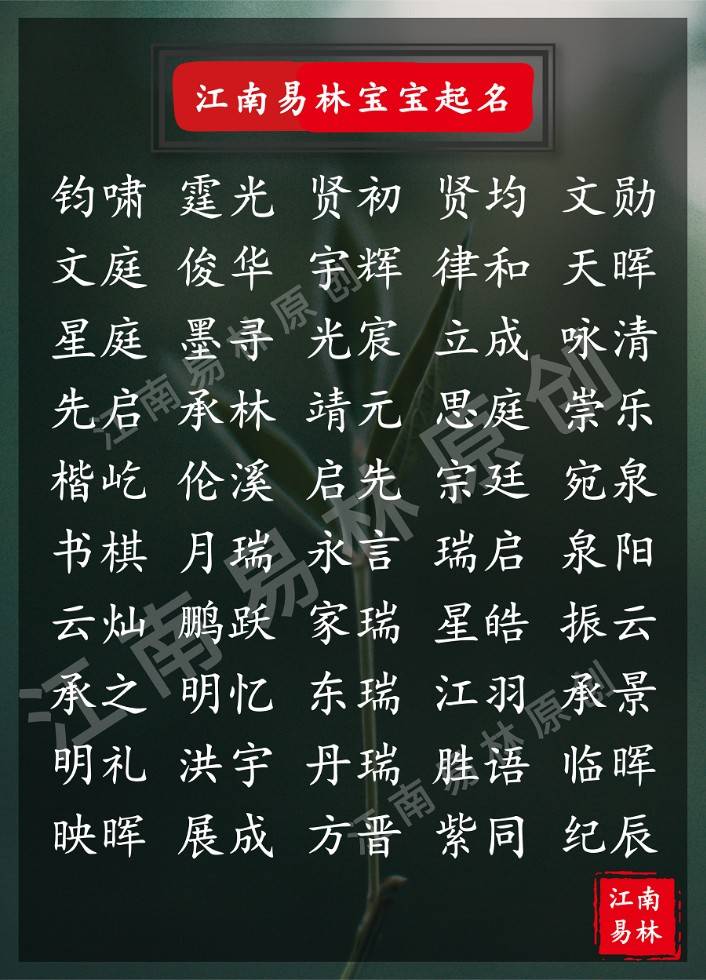 江南易林宝宝起名
钧啸 霆光 贤初 贤均 文勋
文庭 俊华 宇辉 律和 天晖
星庭 墨寻 光宸 立成 咏清
先启 承林 靖元 思庭 崇乐
楷屹 伦溪 启先 宗廷 宛泉
书棋 月瑞 永言 瑞启 泉阳
云灿 鹏跃 家瑞 星皓 振云
承之 明忆 东瑞 江羽 承景
明礼 洪宇 丹瑞 胜语 临晖
映晖 展成 方晋 紫同 纪辰
江南易林原创
江南易林原创
江南易林原创
江南
易林